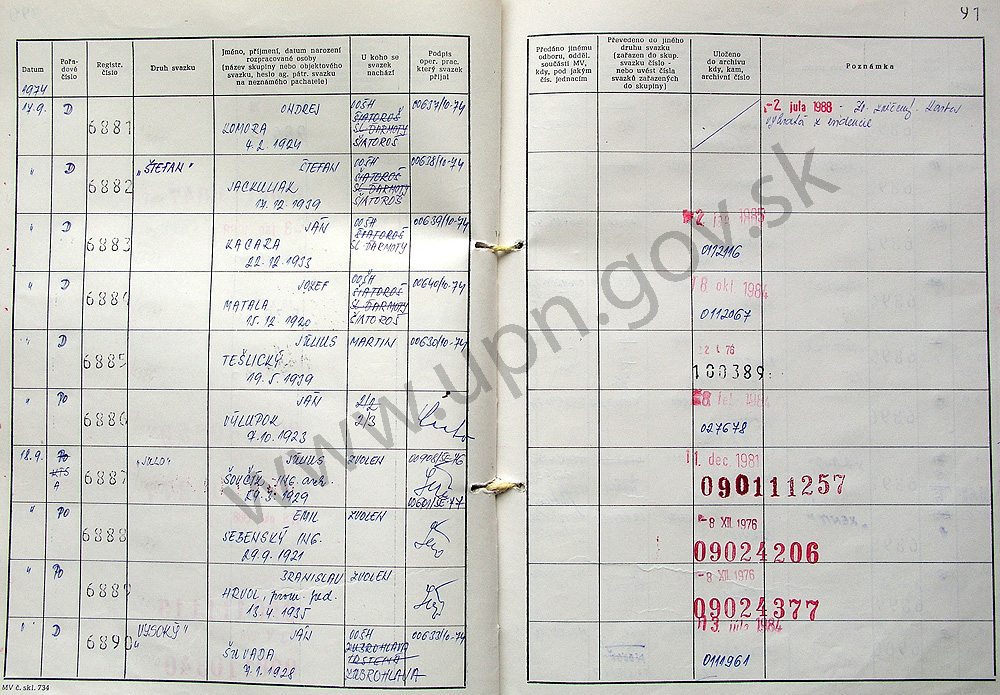 91
Datum
Pořa-
dové
číslo
Registr.
číslo
Druh svazku
Jméno, příjmení, datum narození
rozpracované osoby
(název skupiny nebo objektového
svazku, heslo ag. pátr. svazku
na neznámého pachatele)
U koho se
svazek
nachází
Podpis
oper. prac.
který svazek
přijal
Předáno jinému
odboru, odděl.
součásti MV,
kdy, pod jakým
čís. jednacím
Převedeno do jiného
druhu svazku
(zařazen do skup.
svazku číslo -
nebo uvést čísla
svazků zařazených
do skupiny)
Uloženo
do archivu
kdy, kam,
archivní číslo
Poznámka
1974
17.9. D 6881 ONDREJ
KOMORA
4.2. 1924
OOŠH
ŠIATOROŠ
SL. ĎARMOTY
ŠIATOROŠ
00637/10-74
-2. júla 1988
" D 6882 "ŠTEFAN" ŠTEFAN
JACKULIAK
17.12.1939
OOŠH
ŠIATOROŠ
SL. ĎARMOTY
ŠIATOROŠ
00638/10-74
" D 6883 JÁN
KACARA
22.12.1933
OOŠH
ŠIATOROŠ
SL. ĎARMOTY
00639/10-74
0112116
" D 6884 JOZEF
MATALA
15.12.1920
OOŠH
ŠIATOROŠ
SL. ĎARMOTY
ŠIATOROŠ
00640/10-74
18 okt. 1984
0112067
" D 6885 JÚLIUS
TEŠLICKÝ
19.5.1939
MARTIN
00630/10-74
100389
" PO 6886 JÁN
VÝLUPOK
7.10.1923
2/2
2/3
027678
18.9. PO
A
6887 "JULO" JÚLIUS
ŠOUČÍK - ING. arch.
29.3.1929
ZVOLEN
11. dec. 1981
090111257
" PO 6888 EMIL
SEBENSKÝ ING.
29.9.1921
ZVOLEN
-8 XII. 1976
09024206
" PO 6889 BRANISLAV
HRVOL, prom. ped.
13.4.1935
ZVOLEN
-8 XII. 1976
09024377
" D 6890 "VYSOKÝ" JÁN
ŠILVADA
7.1.1928
OOŠH
ZUBROHLAVA
TRSTENÁ
ZUBROHLAVA
00633/10-74
13. júla 1984
0111961
MV č. skl. 734
www.upn.gov.sk